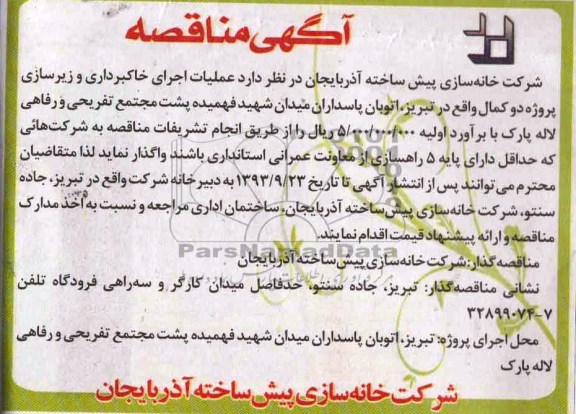 آگهی مناقصه
شرکت خانه‌سازی پیش ساخته آذربایجان در نظر دارد عملیات اجرای خاکبرداری و زیرسازی
پروژه دو کمال واقع در تبریز، اتوبان پاسداران میدان شهید فهمیده پشت مجتمع تفریحی و رفاهی
لاله پارک با برآورد اولیه ۵/۰۰۰/۰۰۰/۰۰۰ ریال را از طریق انجام تشریفات مناقصه به شرکت‌هائی
که حداقل دارای پایه ۵ راهسازی از معاونت عمرانی استانداری باشند واگذار نماید لذا متقاضیان
محترم می‌توانند پس از انتشار آگهی تا تاریخ ۱۳۹۳/۹/۲۳ به دبیرخانه شرکت واقع در تبریز، جاده
سنتو، شرکت خانه‌سازی پیش ساخته آذربایجان، ساختمان اداری مراجعه و نسبت به اخذ مدارک
مناقصه و ارائه پیشنهاد قیمت اقدام نمایند.
ParsNamadData
مناقصه گذار: شرکت خانه سازی پیش ساخته آذربایجان
نشانی مناقصه‌گذار: تبریز، جاده سنتو، حدفاصل میدان کارگر و سه‌راهی فرودگاه تلفن
۳۲۸۹۹۰۷۴-۷
محل اجرای پروژه: تبریز، اتوبان پاسداران میدان شهید فهمیده پشت مجتمع تفریحی و رفاهی
لاله پارک
شرکت خانه سازی پیش ساخته آذربایجان